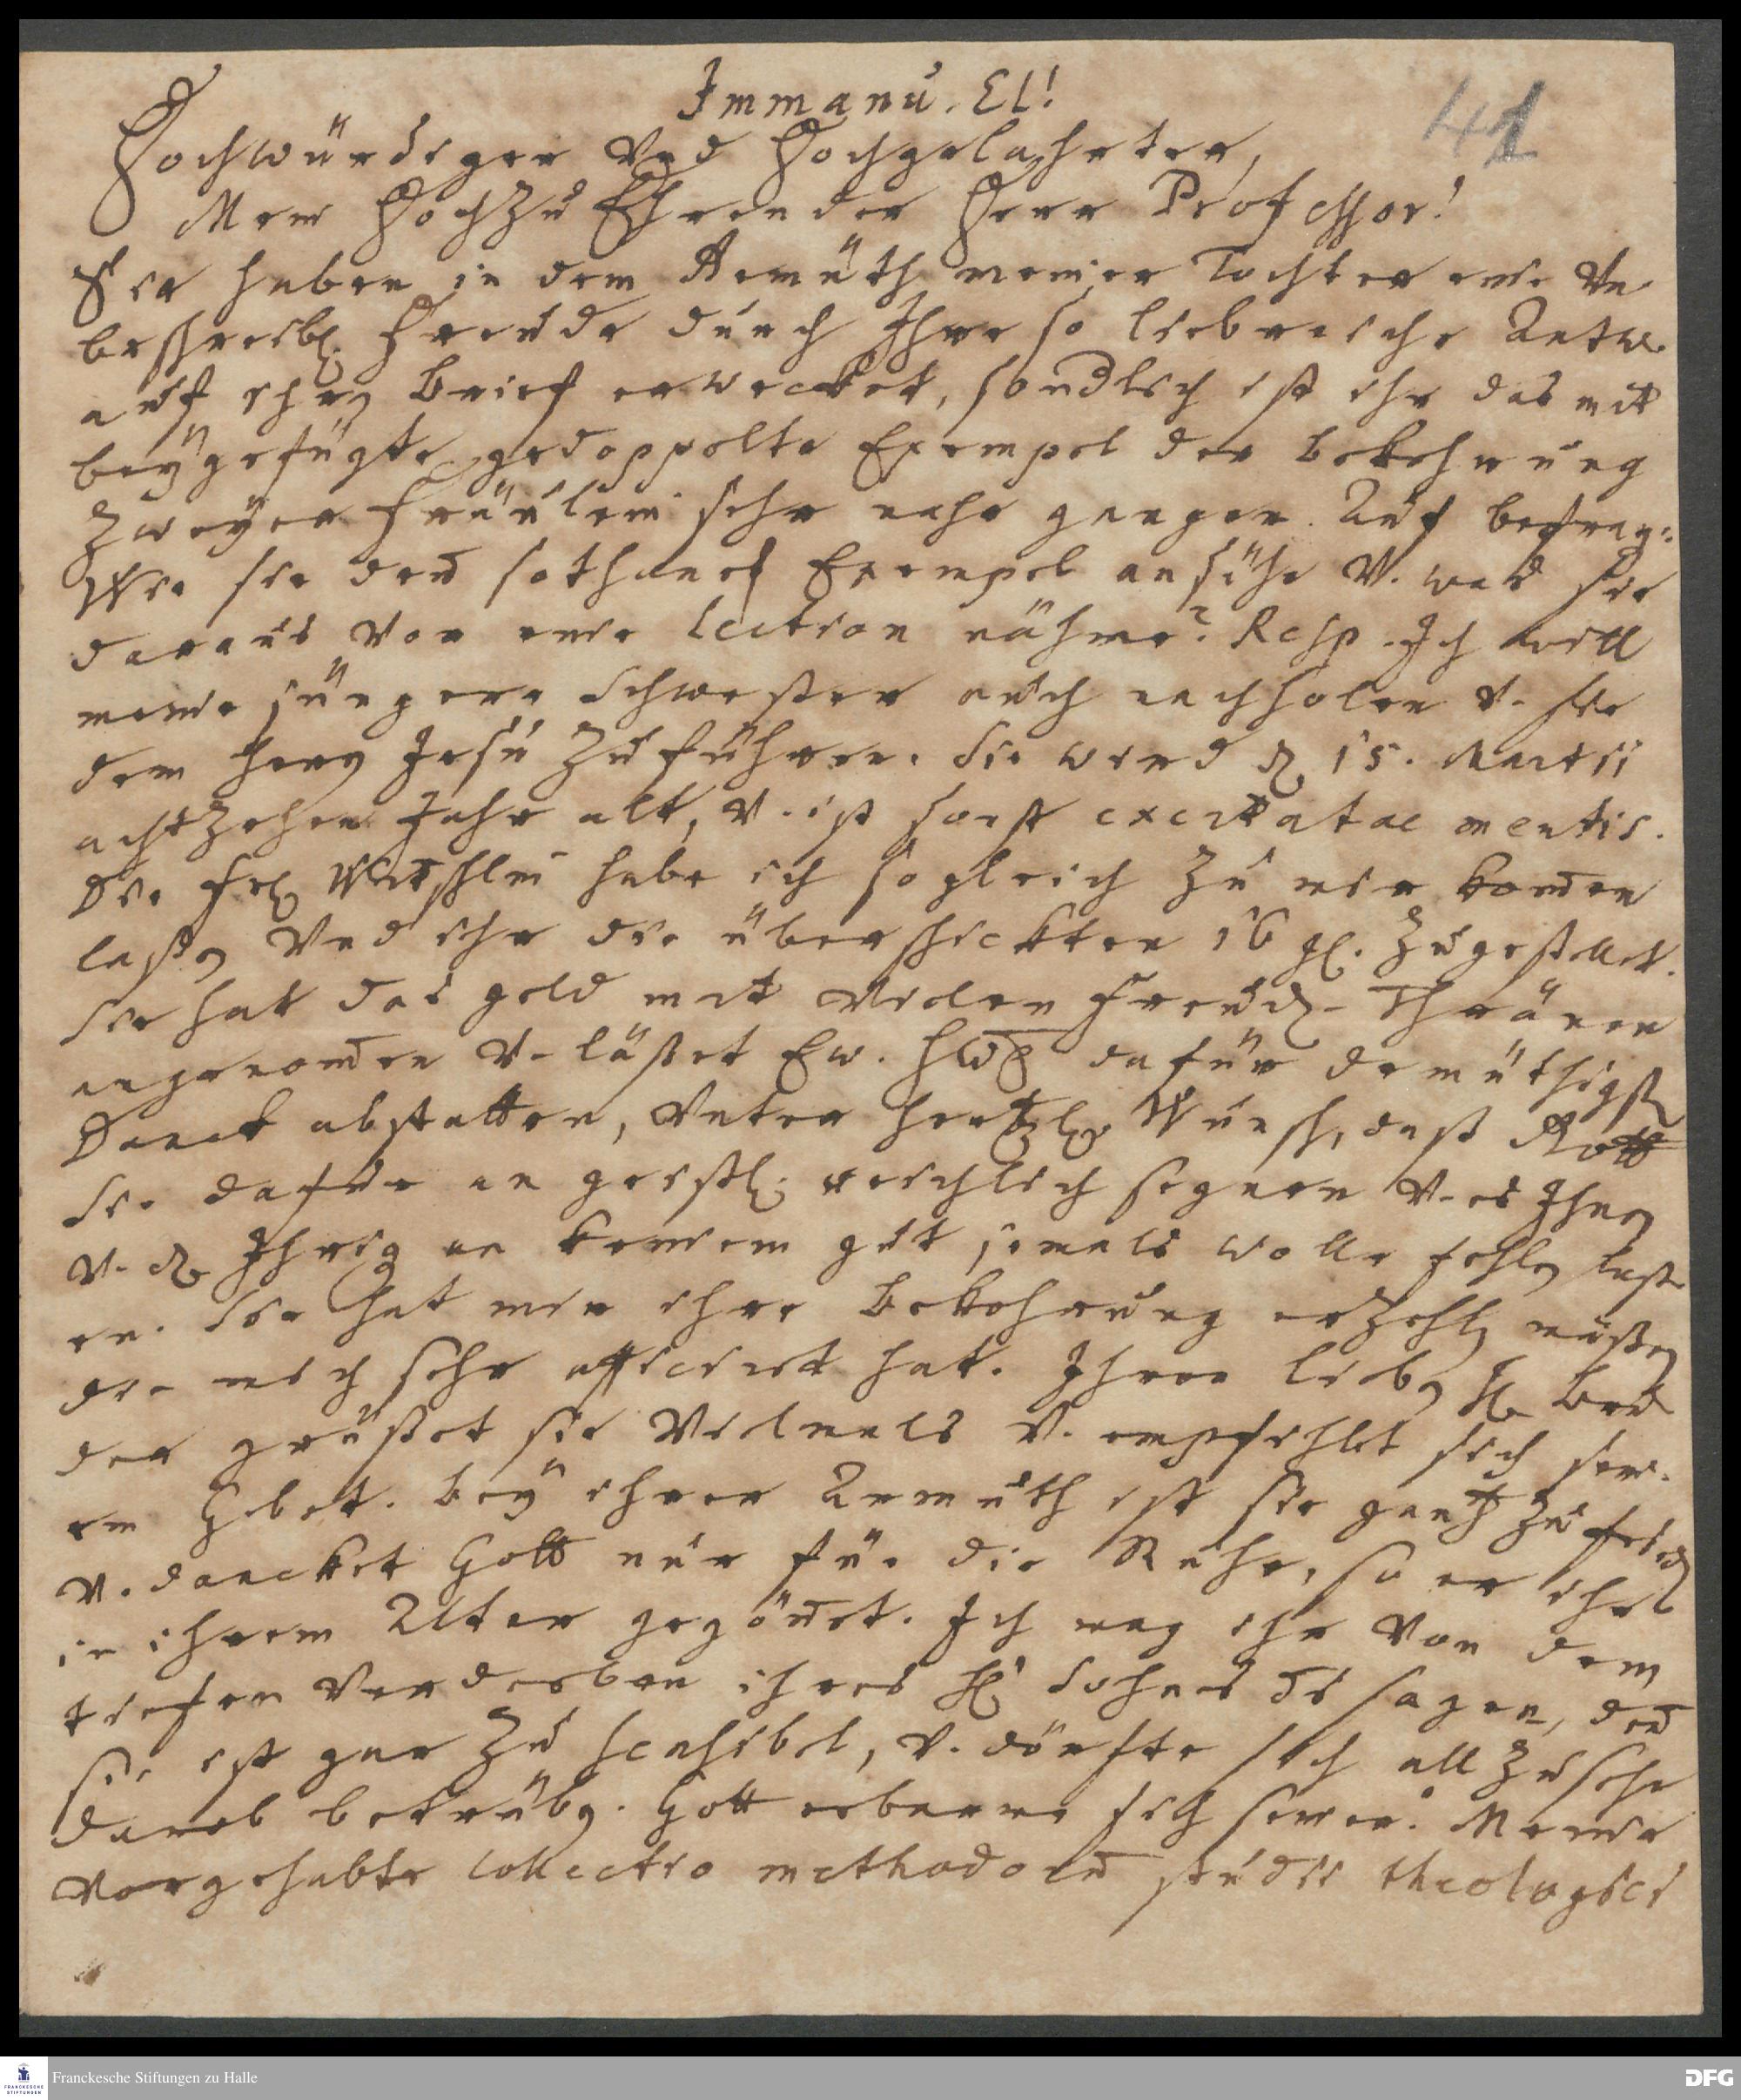 Immanu. El!
41
Hochwürdiger Und Hochgelahrter,
Mein Hochzu Ehrender Herr Professor!
Sie haben in dem Gemüth meiner Tochter eine Un
beschreibl. Freude durch Ihre so liebreiche Antw.
auf ihren Brief erwecket, sondlich ist ihr das mit
beygefügte gedoppelte Exempel der bekehrung
Zweyer Fräulein sehr nahe gangen. Auf befrag:
Wie sie den sothanes Exempel ansähe V. was sie
daraus vor eine lection nähme? Resp. Ich will
meine jüngere Schwester auch nachholen V. sie
dem Herrn Jesu Zuführen. Sie wird d. 15. Martii
achtzehen Jahr alt, V. ist sonst excitatae mentis.
Die Frl. habe ich sogleich zu mir kommen
laßen Und ihr die überschickten 16 gl. Zugestellet.
Sie hat das geld mit vielen Freuden-Thränen
angenommen V. läßet Ew. dafür demüthigst
Danck abstatten, Unter hertzl. Wunsch, daß Gott
Sie dafür an geistl. reichlich segnen V. es Ihnen
V. d. Ihrig an keinem gut jemals wolle fehlen laß
en. Sie hat mir ihre Bekehrung erzehlen müßen
die mich sehr afficiret hat. Ihren lieben H. Bru
der grüßet sie Vielmals V. empfihlet sich sein
em Gebet. Bey ihrer Armuth ist sie gantz Zufrieden
V. dancket Gott nur für die Ruhe, so er ihr
in ihrem Alter gegönnet. Ich mag ihr Von dem
tiefen Verderben ihres H. Sohnes nicht sagen, den
sie ist gar Zu sensibel, V. dörfte sich allzusehr
darob betrüben. Gott erbarme sich seiner. Meine
vorgehabte collectio methodorum studii theologici
Franckesche Stiftungen zu Halle
FRANCKESCHE
STIFTUNGEN
DFG